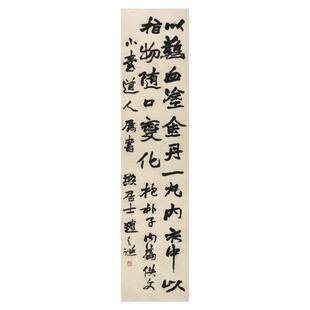 以鷄血塗金丹一丸內衣中以
指物随口變化抱朴子內篇佚文
小壺道人屬書
歙居士趙之謙